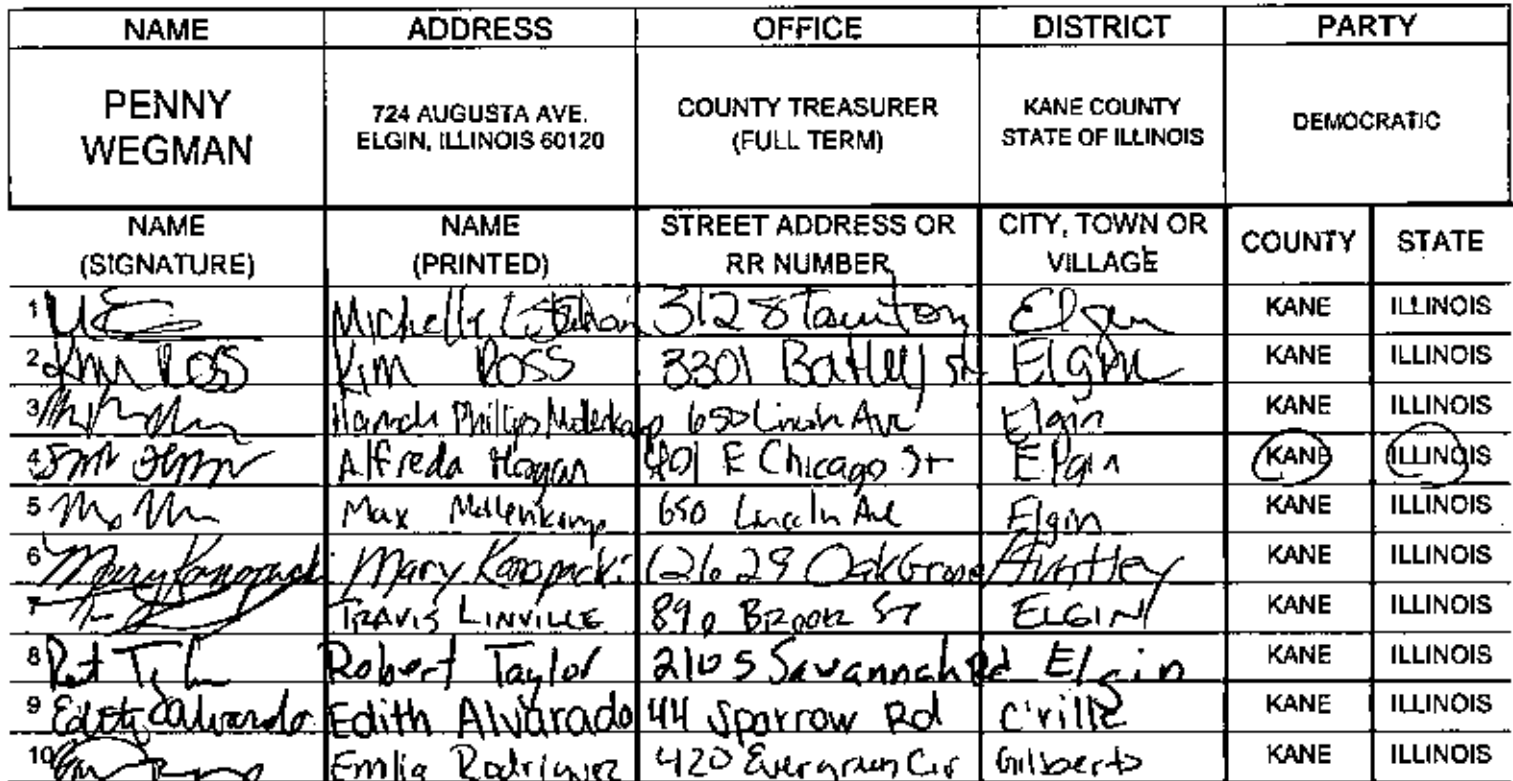 NAME ADDRESS OFFICE DISTRICT PARTY
PENNY WEGMAN 724 AUGUSTA AVE. ELGIN, ILLINOIS 60120 COUNTY TREASURER (FULL TERM) KANE COUNTY STATE OF ILLINOIS DEMOCRATIC
NAME (SIGNATURE) NAME (PRINTED) STREET ADDRESS OR RR NUMBER CITY, TOWN OR VILLAGE COUNTY STATE
1 Michelle 3128 Taunton Elgin KANE ILLINOIS
2 Kim Ross Kim Ross 3301 Elgin KANE ILLINOIS
3 Hannah Phillips Mollenkamp 650 Lincoln Ave Elgin KANE ILLINOIS
4 Alfreda Hogan 401 E Chicago St Elgin KANE ILLINOIS
5 Max Mollenkamp 650 Lincoln Ave Elgin KANE ILLINOIS
6 Mary Konopacki Mary Konopacki 12629 Oak Grove Huntley KANE ILLINOIS
7 TRAVIS LINVILLE 890 BROOK ST ELGIN KANE ILLINOIS
8 Robert Taylor 2105 Savannah Rd Elgin KANE ILLINOIS
9 Edith Alvarado Edith Alvarado 44 Sparrow Rd C'ville KANE ILLINOIS
10 Emilia Rodriguez 420 Evergreen Cir Gilberts KANE ILLINOIS